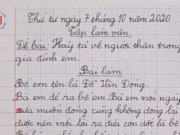 Thứ tư ngày 7 tháng 10 năm 2020
Tập làm văn
Đề bài: Hãy tả về người thân trong
gia đình em.
Bài làm
Bố em tên là Đỗ Văn Dông.
Bà em đẻ ra bố em Bà em nói ngày
muốn đông cung không đông lại
được nên mới lại ra đứa con đốt là bố